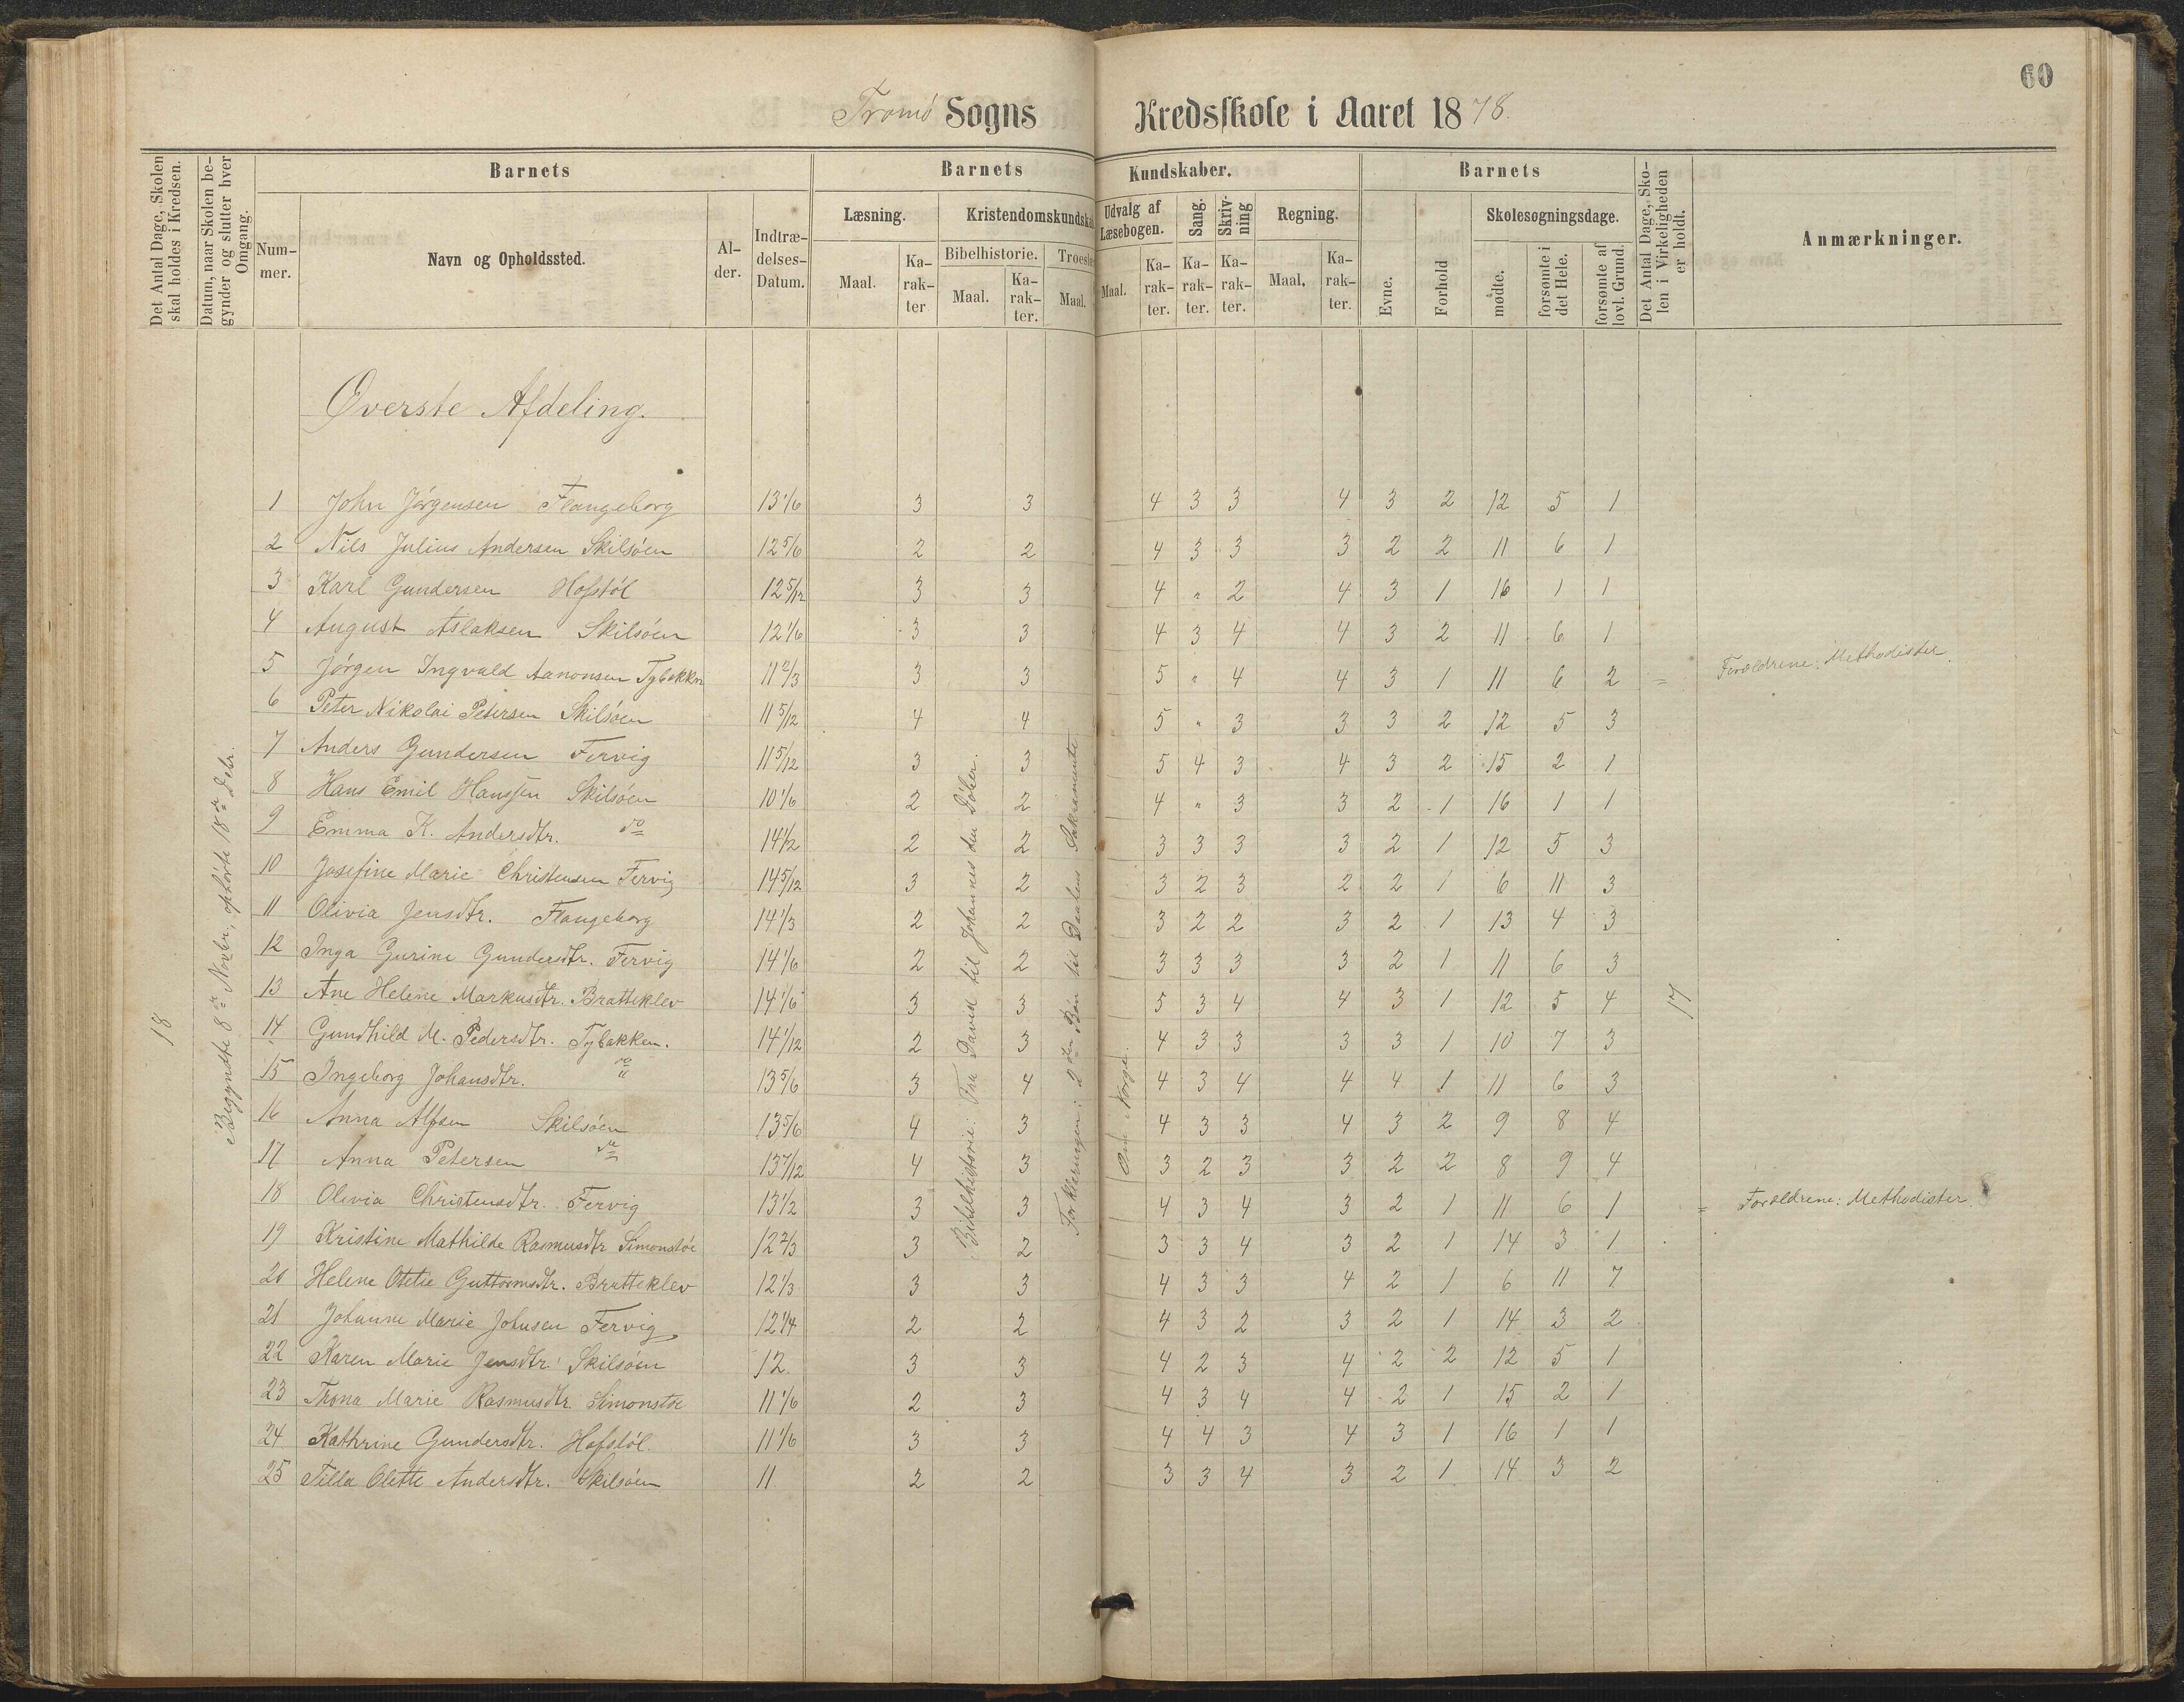 60
Tromö Sogns Kredsskole i Aaret 1878.
Det Antal Dage, Skolen skal holdes i Kredsen.
Datum, naar Skolen begynder og slutter hver Omgang.
Barnets
Num-mer.
Navn og Opholdssted.
Al-der.
Indtræ-delses-Datum.
Barnets Kundskaber.
Læsning.
Maal.
Ka-rak-ter
Kristendomskundska
Bibelhistorie.
Maal.
Ka-rak-ter.
Troesl
Maal.
Udvalg af Læsebogen.
Maal.
Ka-rak-ter.
Sang.
Ka-rak-ter.
Skriv-ning
Ka-rak-ter.
Regning.
Maal,
Ka-rak-ter.
Barnets
Evne.
Forhold
Skolesøgningsdage.
mødte.
forsømte i det Hele.
forsømte af lovl. Grund.
Det Antal Dage, Sko-len i Virkeligheden er holdt.
Anmærkninger.
Överste Afdeling.
1 John Jörgensen Flangeborg 13 1/6 3 3 4 3 3 4 3 2 12 5 1
2 Nils Julius Andersen Skilsöen 12 5/6 2 2 4 3 3 3 2 2 11 6 1
3 Karl Gundersen Hofstöl 12 5/12 3 3 4 " 2 4 3 1 16 1 1
4 August Aslaksen Skilsöen 12 1/6 3 3 4 3 4 4 3 2 11 6 1
5 Jörgen Ingvald Aanonsen Tybakkn 11 2/3 3 3 5 " 4 4 3 1 11 6 2 = Forældrene: Methodister.
6 Peter Nikolai Petersen Skilsöen 11 5/12 4 4 5 " 3 3 3 2 12 5 3
7 Anders Gundersen Fervig 11 5/12 3 3 5 4 3 4 3 2 15 2 1
8 Hans Emil Hanssen Skilsöen 10 1/6 2 2 4 " 3 3 2 1 16 1 1
9 Emma K. Andersdtr. do 14 1/2 2 2 3 3 3 3 2 1 12 5 3
10 Josefine Marie Christensen Fervig 14 5/12 3 2 3 2 3 2 2 1 6 11 3
11 Olivia Jensdtr. Flangeborg 14 1/3 2 2 3 2 2 3 2 1 13 4 3
12 Inga Gurine Gundersdtr. Fervig 14 1/6 2 2 3 3 3 3 2 1 11 6 3
13 Ane Helene Markusdtr. Bratteklev 14 1/6 3 3 5 3 4 4 3 1 12 5 4
14 Gundhild M. Pedersdtr. Tybakken. 14 1/12 2 3 4 3 3 3 3 1 10 7 3
15 Ingeborg Johansdtr. do 13 5/6 3 4 4 3 4 4 4 1 11 6 3
16 Anna Alfsen Skilsöen 13 5/6 4 3 4 3 3 4 3 2 9 8 4
17 Anna Petersen do 13 7/12 4 3 3 2 3 3 2 2 8 9 4
18 Olivia Christensdtr. Fervig 13 1/2 3 3 4 3 4 3 2 1 11 6 1 = Forældrene: Methodister.
19 Kristine Mathilde Rasmusdtr Simonstöe 12 2/3 3 2 3 3 4 3 2 1 14 3 1
20 Helene Otelie Guttormsdtr. Bratteklev 12 1/3 3 3 4 3 3 4 2 1 6 11 7
21 Johanne Marie Johnsen Fervig 12 1/4 2 2 4 3 2 3 2 1 14 3 2
22 Karen Marie Jensdtr. Skilsöen 12. 3 3 4 2 3 4 2 2 12 5 1
23 Trona Marie Rasmusdtr. Simonstöe 11 1/6 2 3 4 3 4 4 2 1 15 2 1
24 Kathrine Gundersdtr. Hofstöl. 11 1/6 3 3 4 4 3 4 3 1 16 1 1
25 Tilla Olette Andersdtr. Skilsöen 11 2 2 3 3 4 3 2 1 14 3 2
18
Begyndte 8de Novbr., ophörte 18de Debr.
Bibelhistorie: Fra David til Johannes den Döber.
Forklaringen: 2den Bön til Daabens Sakramente
Om Norge.
17